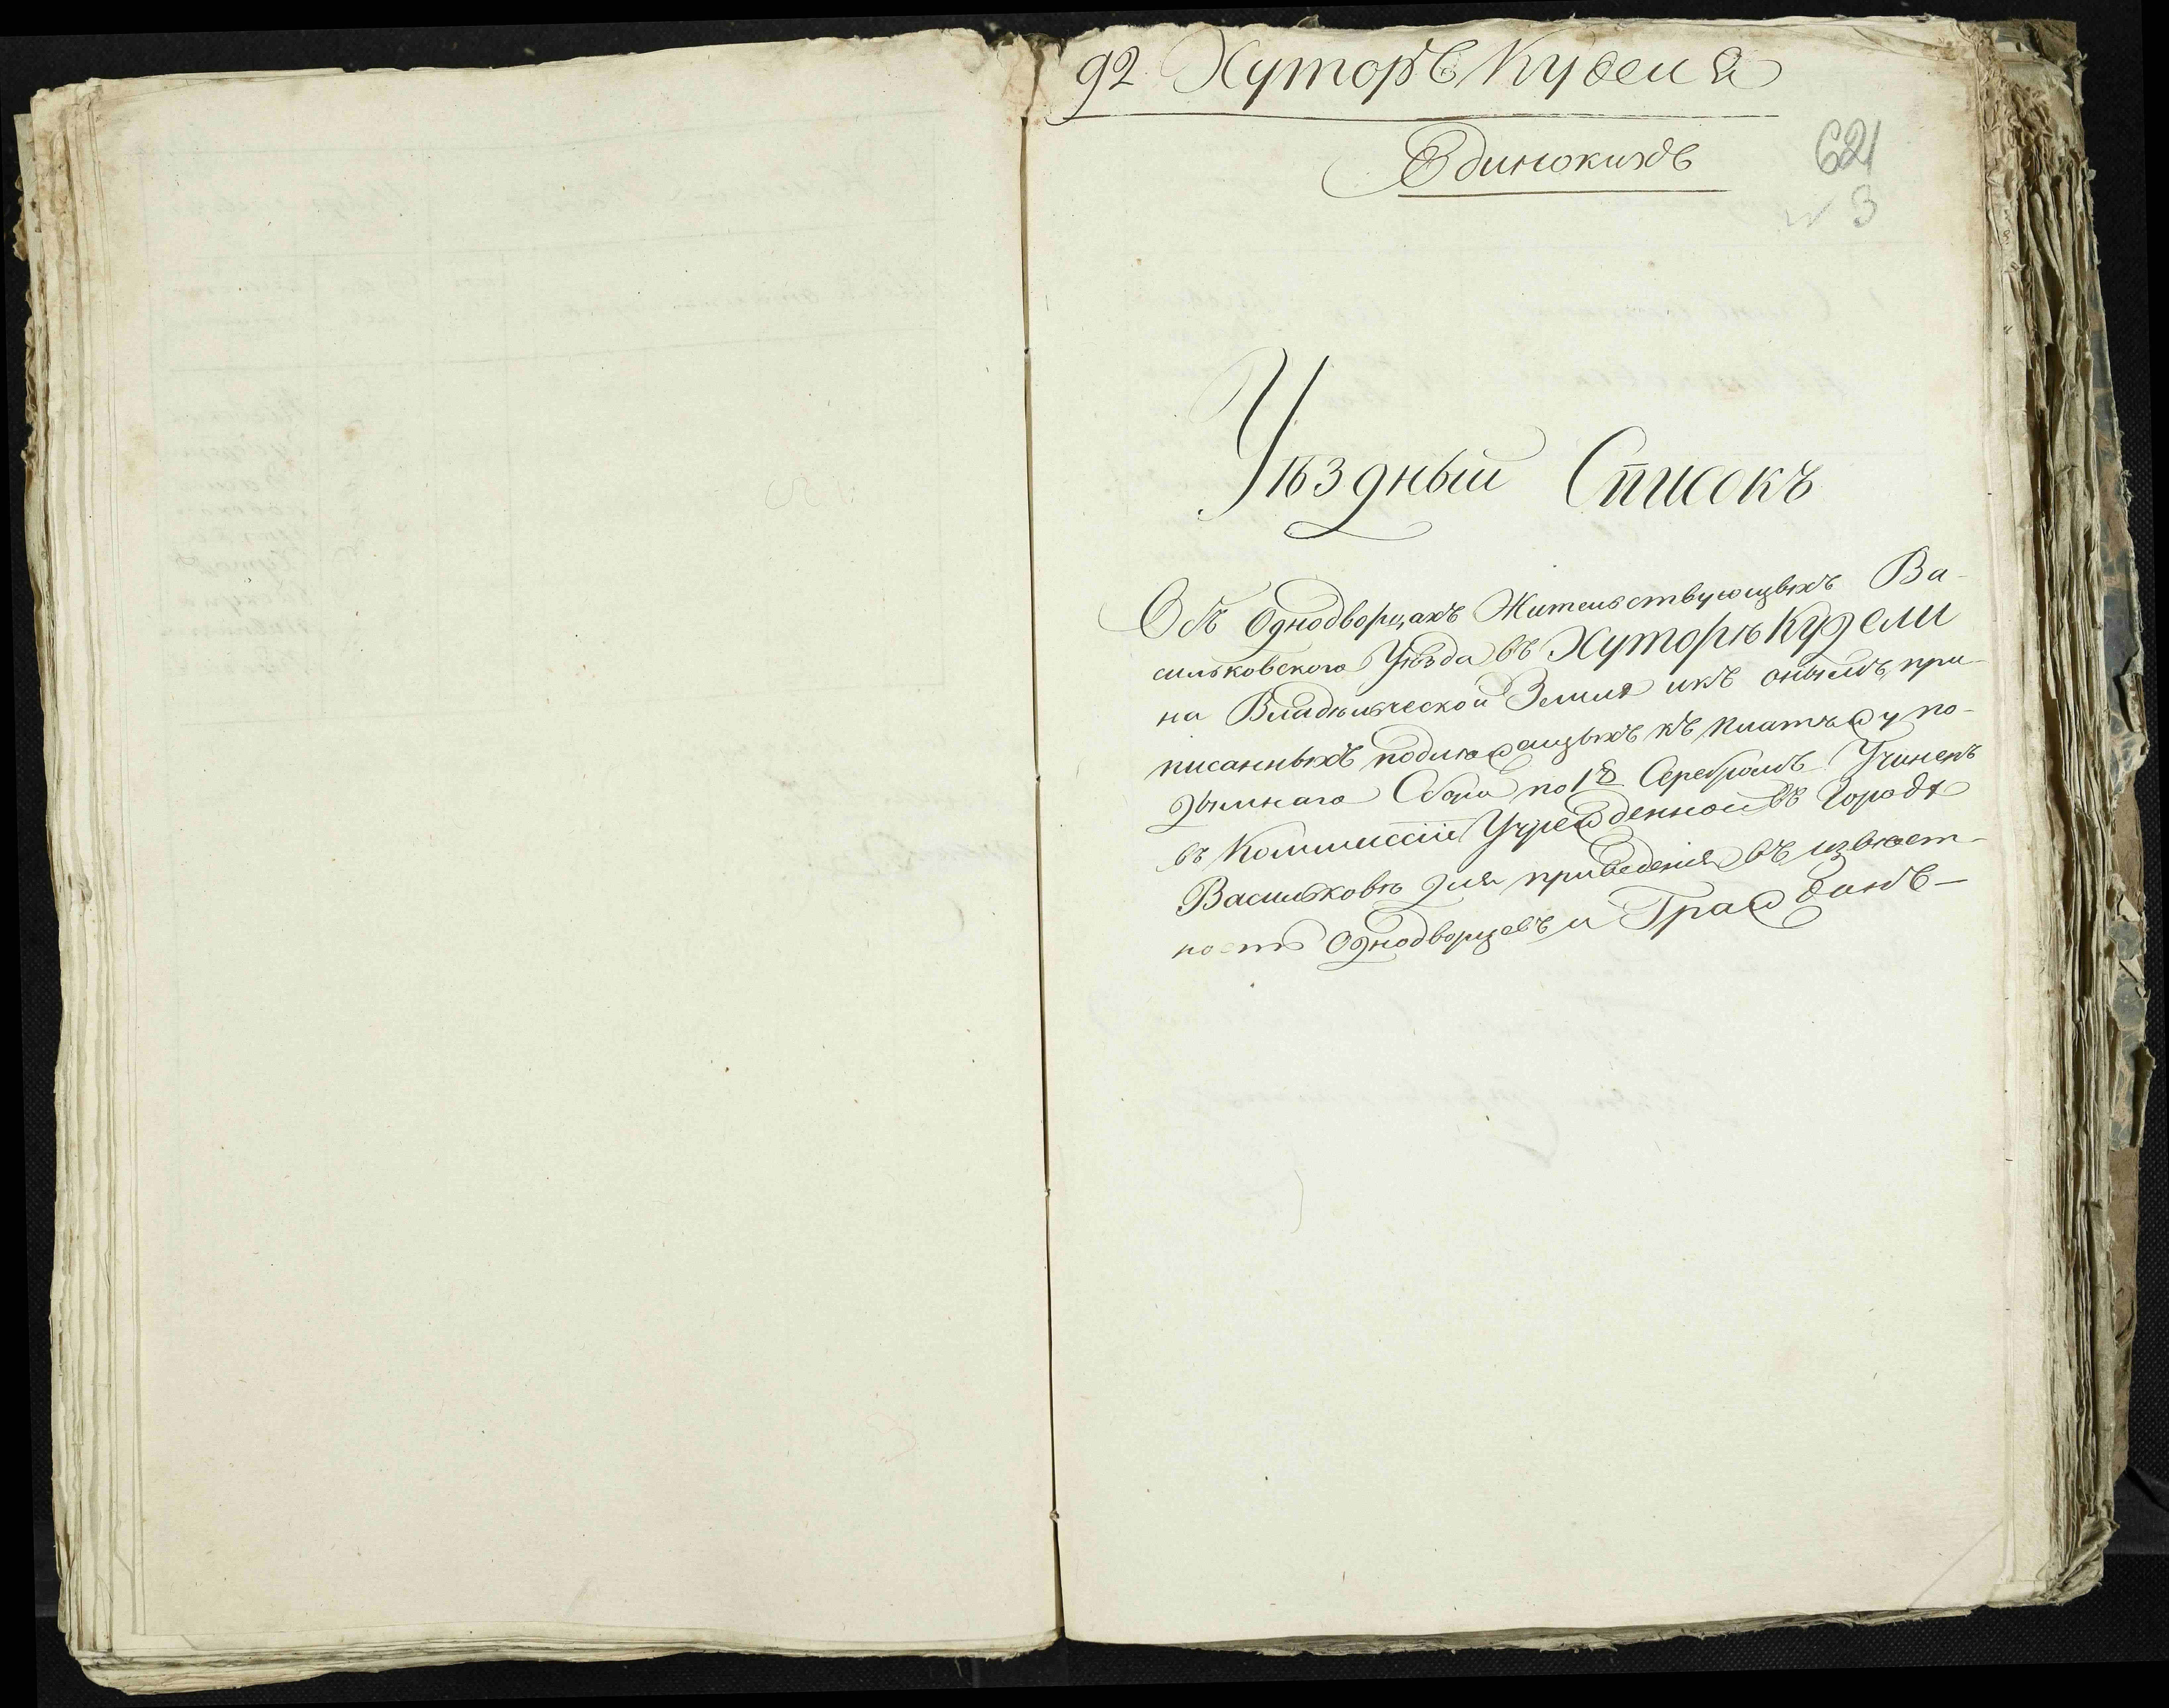 92 Хуторъ Куделя
Одинокихъ
621
3
Уѣздный Списокъ
Объ Однодворцахъ Жительствующыхъ Ва-
сильковского Уѣзда въ Хуторѣ Кудели
на Владѣльческой Землѣ икъ онымъ, при-
писанныхъ подлежащыхъ къ платежу по-
дымнаго Сбора по 1 Серебромъ Учиненъ
въ Коммиссіи Учрежденной въ Городѣ
Васильковѣ для приведенія въ извѣст-
ность Однодворцевъ и Гражданъ—